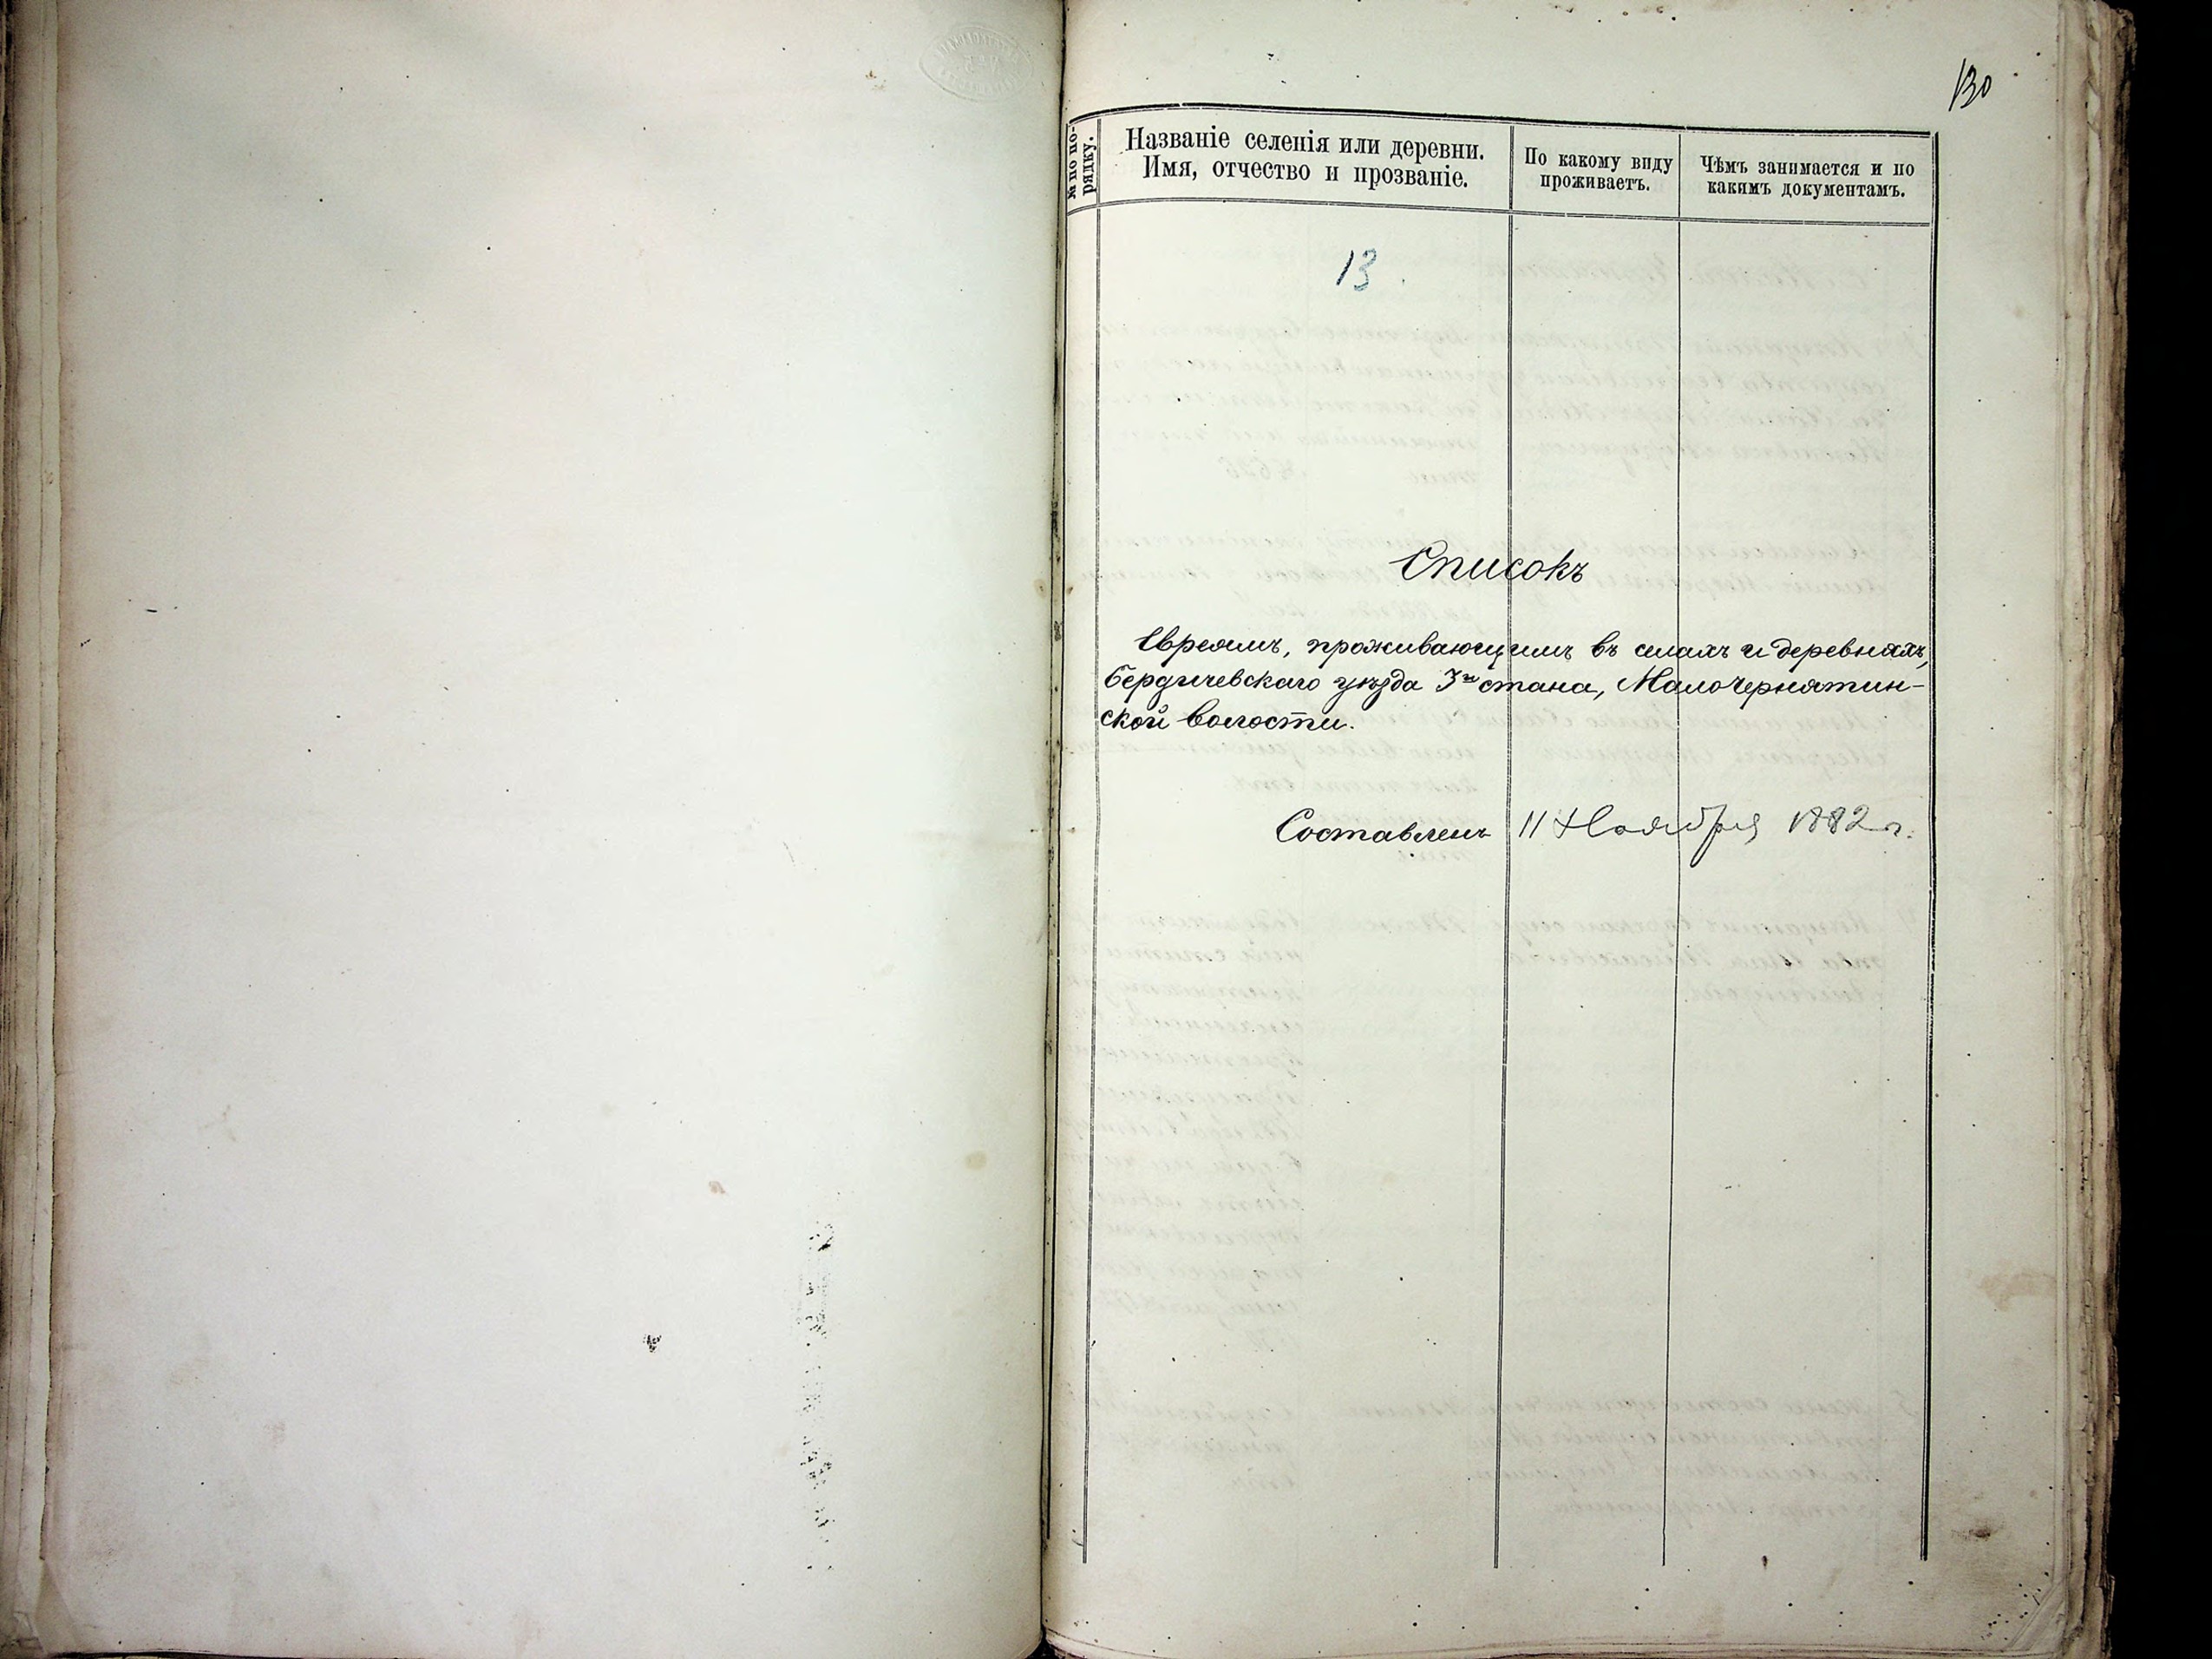 130
№ по по-
рядку.
Названіе селенія или деревни.
Имя, отчество и прозваніе.
По какому виду
проживаетъ.
Чѣмъ занимается и по
какимъ документамъ.
13.
Списокъ
Евреямъ, проживающимъ въ селахъ и деревняхъ,
Бердичевскаго уѣзда 3го стана, Малочернятин-
ской волости.
Составленъ 11 Ноября 1882 г.